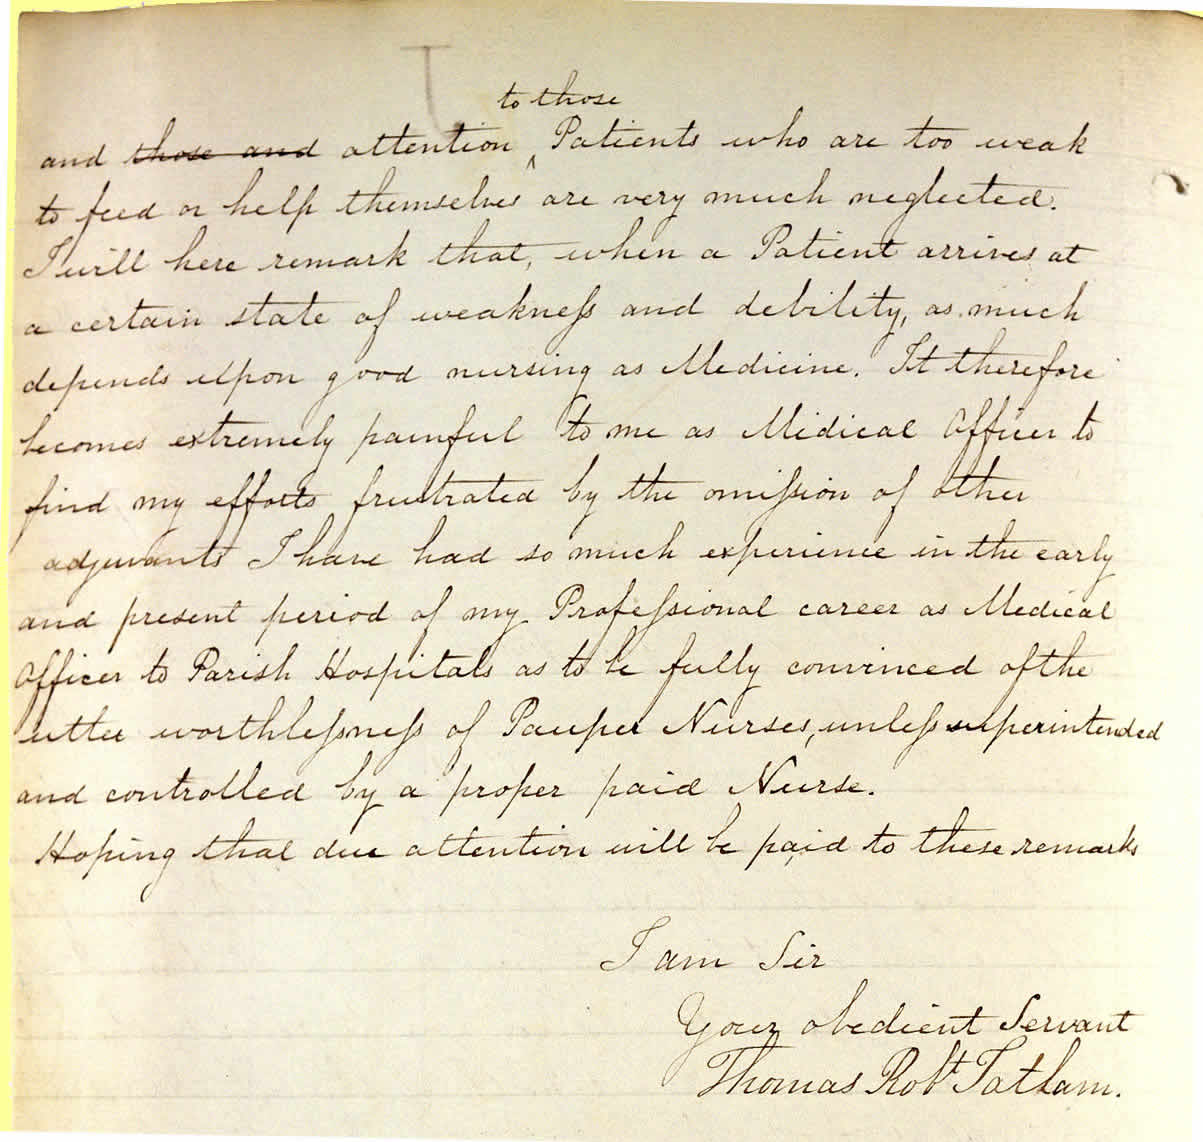 to those
and those and attention ^ Patients who are too weak
to feed or help themselves are very much neglected.
I will here remark that, when a Patient arrives at
a certain state of weakneſs and debility, as much
depends upon good nursing as Medicine. It therefore
becomes extremely painful to me as Medical Officer to
find my efforts frustrated by the omiſsion of other
adjuvants I have had so much experience in the early
and present period of my Profeſsional career as Medical
Officer to Parish Hospitals as to be fully convinced of the
utter worthleſsneſs of Pauper Nurses, unleſs superintended
and controlled by a proper paid Nurse.
Hoping that due attention will be paid to these remarks
I am Sir
Your obedient Servant
Thomas Robt Tatham.